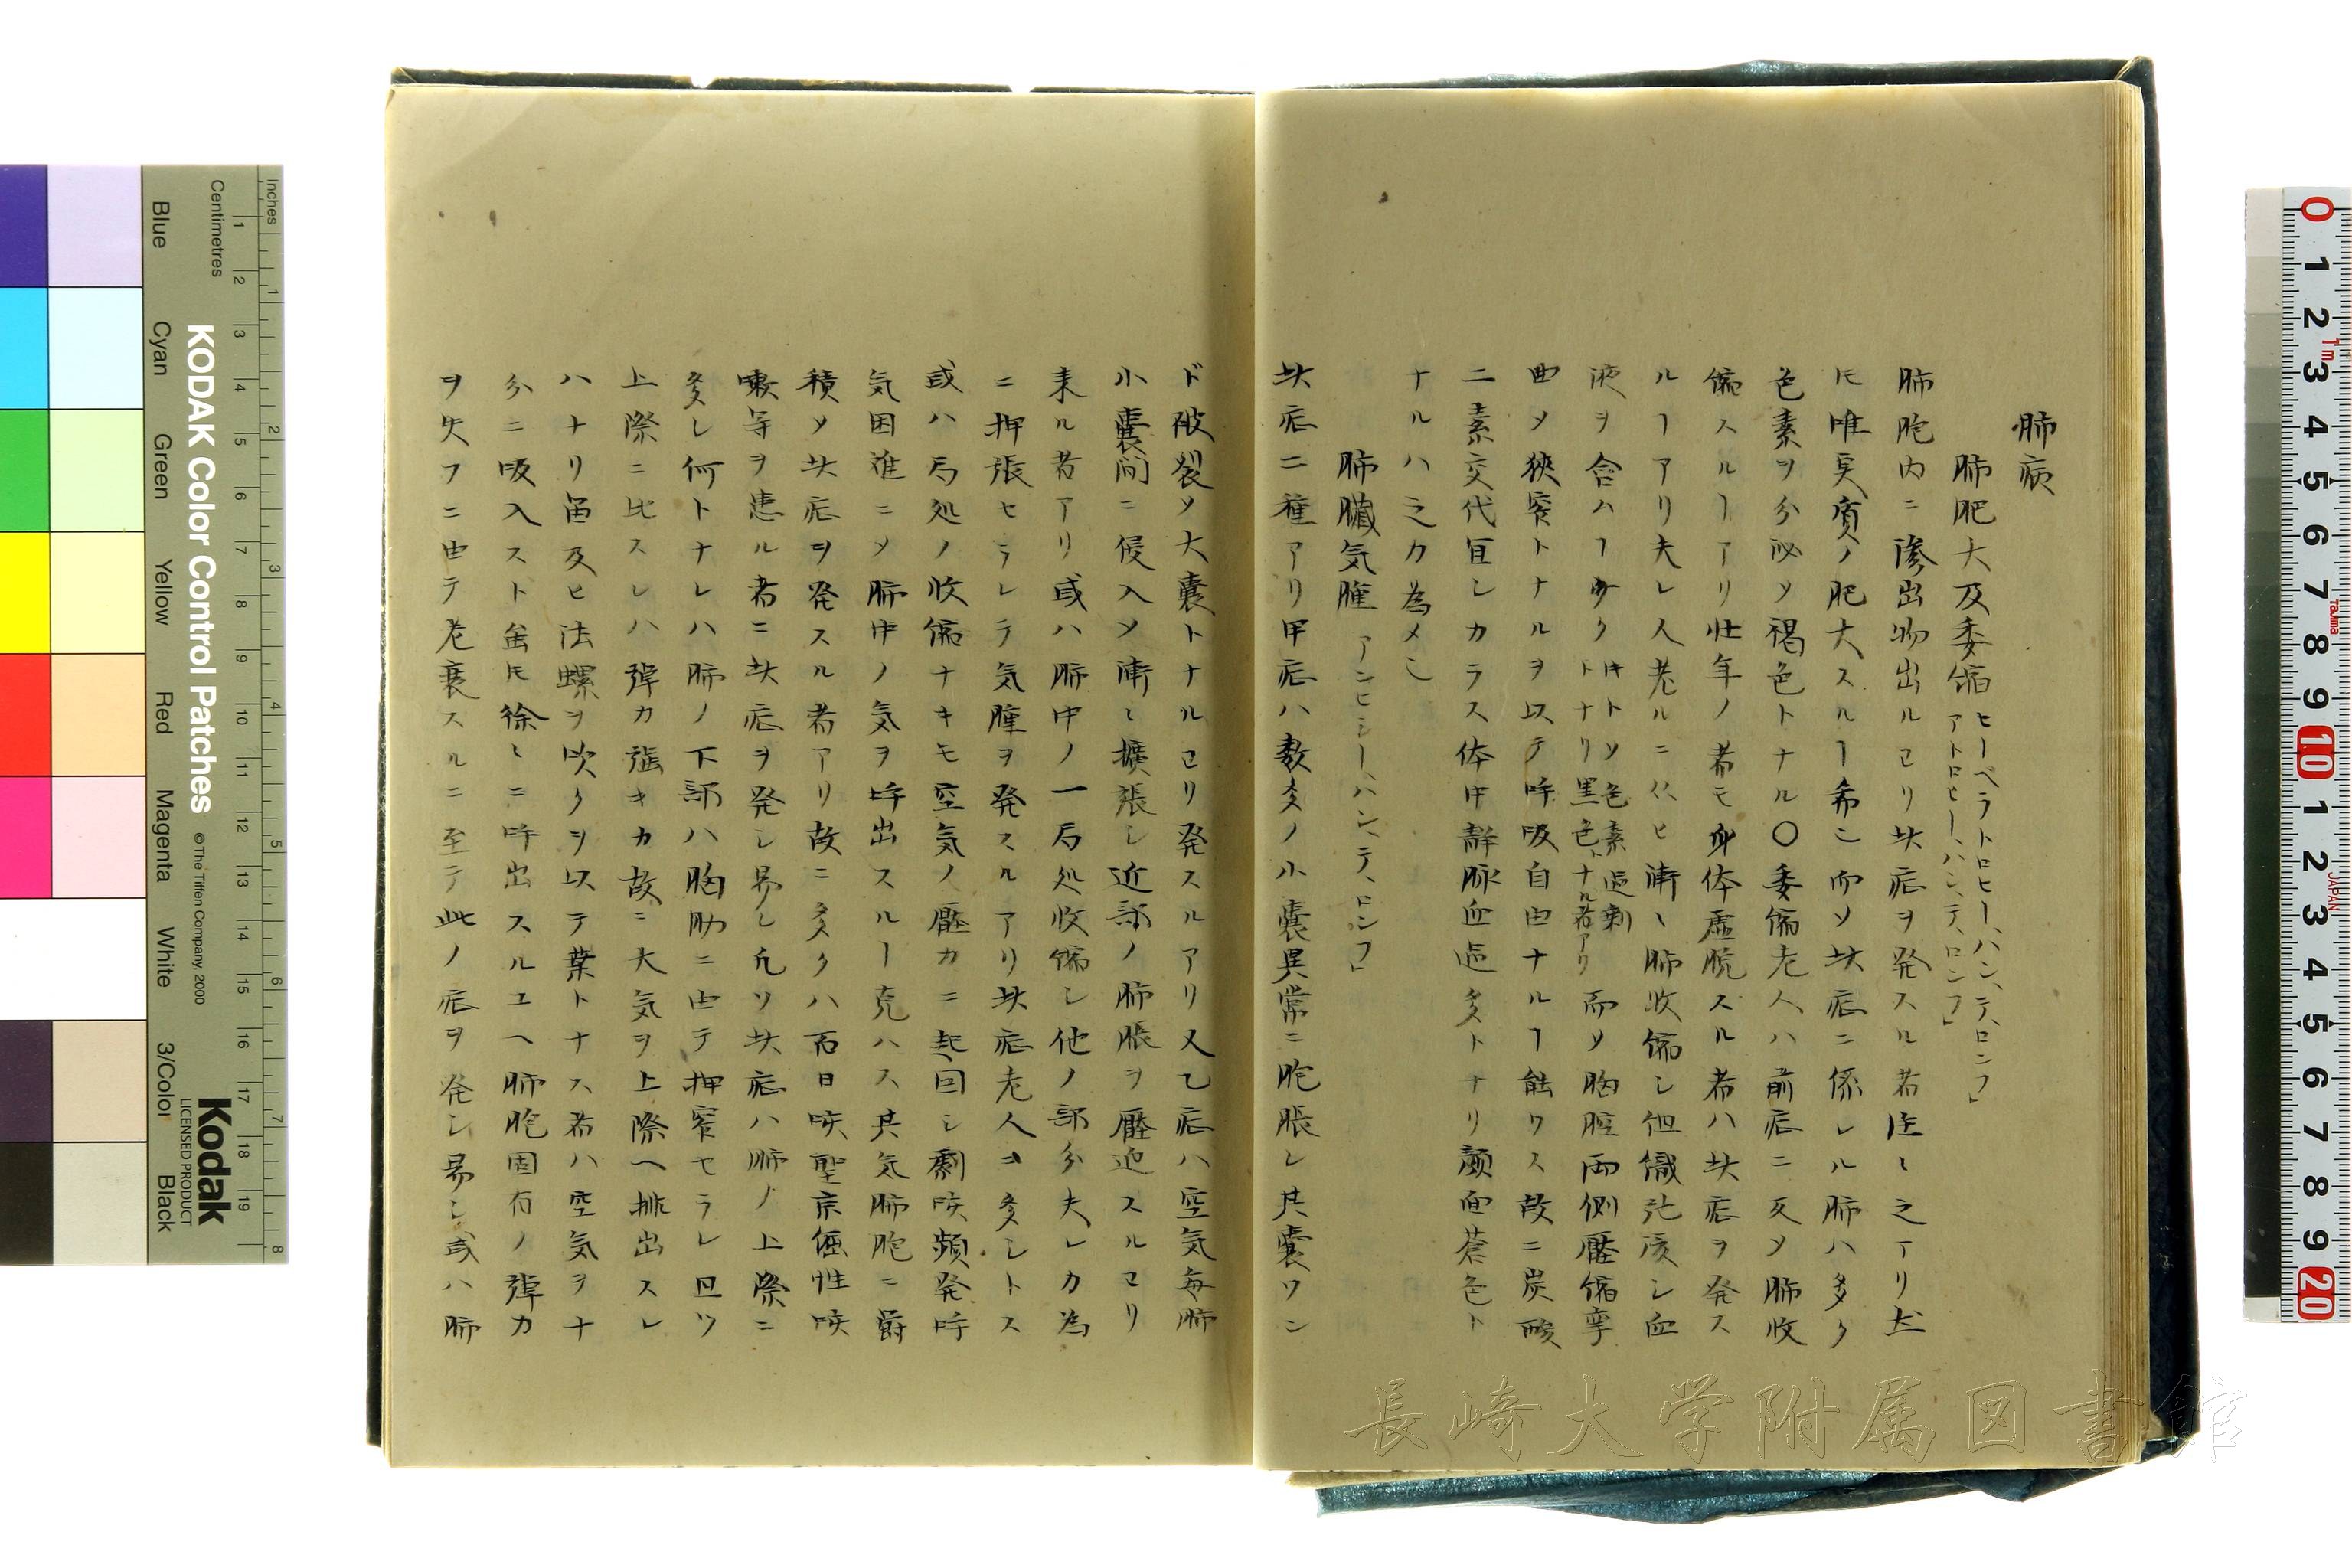 肺病
肺肥大及委縮 ヒーペラトロヒー、ハン、テ、ロンフ」
アトロヒー、ハン、テ、ロンフ」
肺胞内ニ滲出物出ルヨリ此症ヲ発スル者往々之アリ然
𪜈唯実質ノ肥大スルヿ希ニ而ソ此症ニ係レル肺ハ多ク
色素ヲ分泌ソ褐色トナル〇委縮老人ハ前症ニ反ソ肺收
縮スルヿアリ壮年ノ者モ身体虚脱スル者ハ此症ヲ発ス
ルヿアリ夫レ人老ルニ従ヒ漸々肺收縮シ但織沈渋シ血
液ヲ含ハヿ少ク
汁トソ色素過剰
トナリ黒色トナル者アリ
而ソ胸腔両側壓縮攣
曲ソ狭窄トナルヲ以テ呼吸自由ナルヿ能ワス故ニ炭酸
二素交代宜シカラス体中静脉血過多トナリ顔面蒼色ト
ナルハ之カ為メ也
肺臓気腫 アンヒシーハン、テ、ロンフ」
此症二種アリ甲症ハ数多ノ小嚢異常ニ胞脹シ其嚢ワン
ド破裂ソ大嚢トナルヨリ発スルアリ又乙症ハ空気毎肺
小嚢間ニ侵入ソ漸々擴張シ近部ノ肺脹ヲ壓迫スルヨリ
来ル者アリ或ハ肺中ノ一局処收縮シ他ノ部分夫レカ為
ニ押張セラレテ気腫ヲ発スルアリ此症老人ニ多シトス
或ハ局処ノ收縮ナキモ空気ノ壓力ニ起因シ劇咳頻発呼
気困難ニソ肺中ノ気ヲ呼出スルヿ克ハス其気肺胞ニ欝
積ソ此症ヲ発スル者アリ故ニ多クハ百日咳聖京倔性咳
嗽等ヲ患ル者ニ此症ヲ発シ易シ凢ソ此症ハ肺ノ上際ニ
多シ何トナレハ肺ノ下部ハ胸肋ニ由テ押窄セラレ且ツ
上際ニ比スレハ弾力強キカ故ニ大気ヲ上際ヘ排出スレ
ハナリ笛及ヒ法螺ヲ吹クヲ以テ業トナス者ハ空気ヲ十
分ニ吸入スト雖𪜈徐々ニ呼出スルユヘ肺胞固有ノ弾力
ヲ失フニ由テ老衰スルニ至テ此ノ症ヲ発シ易シ或ハ肺
Inches
Centimetres
Blue
Cyan
Green
Yellow
Red
Magenta
White
3/Color
Black
KODAK Color Control Patches
© The Tiffen Company, 2000
Kodak
LICENSED PRODUCT
長崎大学附属図書館